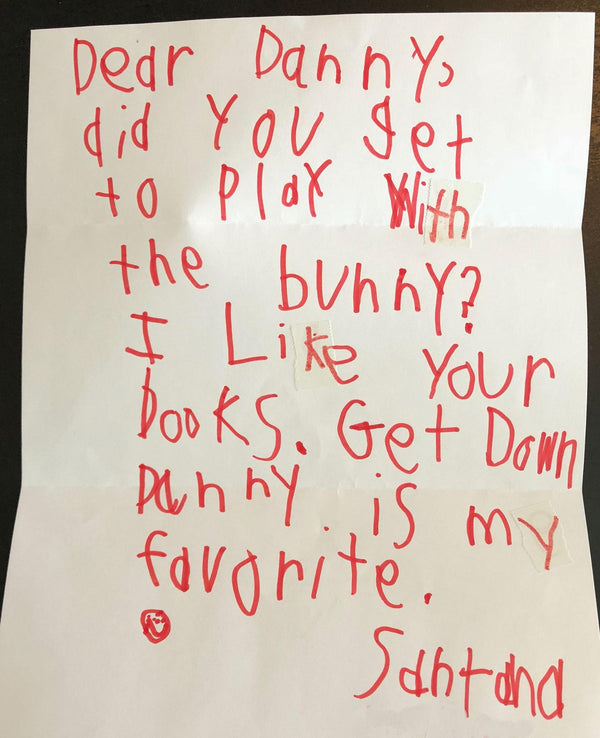 Dear Danny,
did you get
to play with
the bunny?
I Like your
books. Get Down
Danny is my
favorite.
Santana